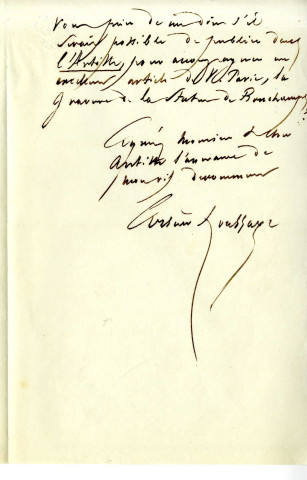 Vous prier de me dire s'il
serait possible de publier dans
l'Artiste, pour accompagner un
excellent article de M. Pavie, la
Gravure de la Statue de Bonchamps
Agréez Monsieur et cher
Artiste l'assurance de
mon vif dévouement
Arsène Houssaye